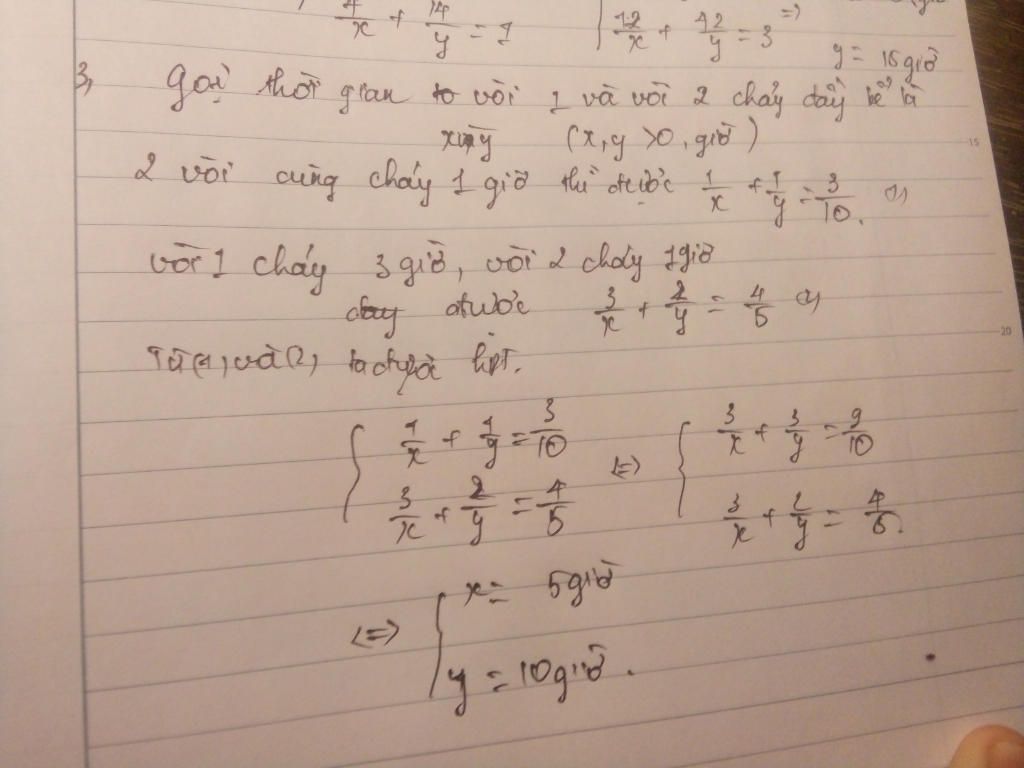 4/x + 14/y = 1 { 12/x + 42/y = 3 =>
y = 16 giờ
3, Gọi thời gian vòi 1 và vòi 2 chảy đầy bể là
x, y (x, y > 0, giờ)
2 vòi cùng chảy 1 giờ thì được 1/x + 1/y = 3/10. (1)
vòi 1 chảy 3 giờ, vòi 2 chảy 1 giờ
được 3/x + 2/y = 4/5 (2)
Từ (1) và (2) ta được hpt.
{ 1/x + 1/y = 3/10 <=> { 3/x + 3/y = 9/10
3/x + 2/y = 4/5 3/x + 2/y = 4/5.
<=> { x = 5 giờ
y = 10 giờ.
15
20